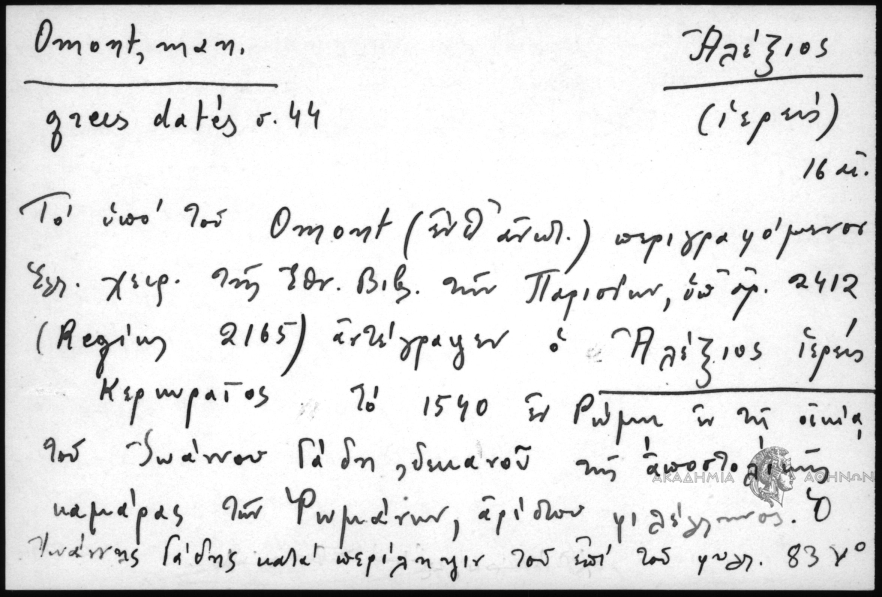 Omont, man.
grecs datés σ. 44
Ἀλέξιος
(ἱερεύς)
16 αἰ.
Τὸ ὑπὸ τοῦ Omont (ἔνθ' ἀνωτ.) περιγραφόμενον
ἑλλ. χειρ. τῆς Ἐθν. Βιβλ. τῶν Παρισίων, ὑπ' ἀρ. 2412
(Regius 2165) ἀντέγραψεν ὁ Ἀλέξιος ἱερεὺς
Κερκυραῖος τὸ 1540 ἐν Ρώμῃ ἐν τῇ οἰκίᾳ
τοῦ Ἰωάννου Γάδη, δεκανοῦ τῆς ἀποστολικῆς
ΑΚΑΔΗΜΙΑ ΑΘΗΝΩΝ
καμάρας τῶν Ῥωμάνων, ἀρίστου φιλέλληνος. Ὁ
Ἰωάννης Γάδης κατὰ περίληψιν τοῦ ἐπὶ τοῦ φυλλ. 83 vº